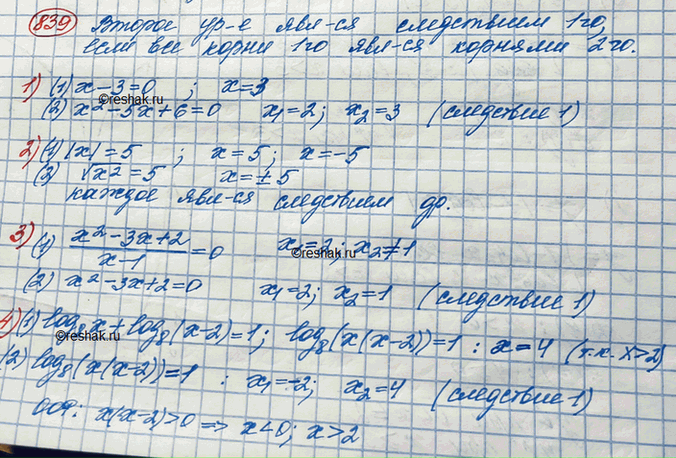 839 Второе ур-е явл-ся следствием 1го,
если все корни 1го явл-ся корнями 2го.
1) (1) x-3=0 ; x=3
(2) x²-5x+6=0 x₁=2; x₂=3 (следствие 1)
©reshak.ru
2) (1) |x|=5 ; x=5; x=-5
(2) √x²=5 x=±5
каждое явл-ся следствием др.
3) (1) (x²-3x+2)/(x-1)=0 x₁=2; x₂≠1
©reshak.ru
(2) x²-3x+2=0 x₁=2; x₂=1 (следствие 1)
4) (1) log₈x+log₈(x-2)=1; log₈(x(x-2))=1 : x=4 (т.к. x>2)
©reshak.ru
(2) log₈(x(x-2))=1 : x₁=-2; x₂=4 (следствие 1)
ООФ: x(x-2)>0 => x<0; x>2